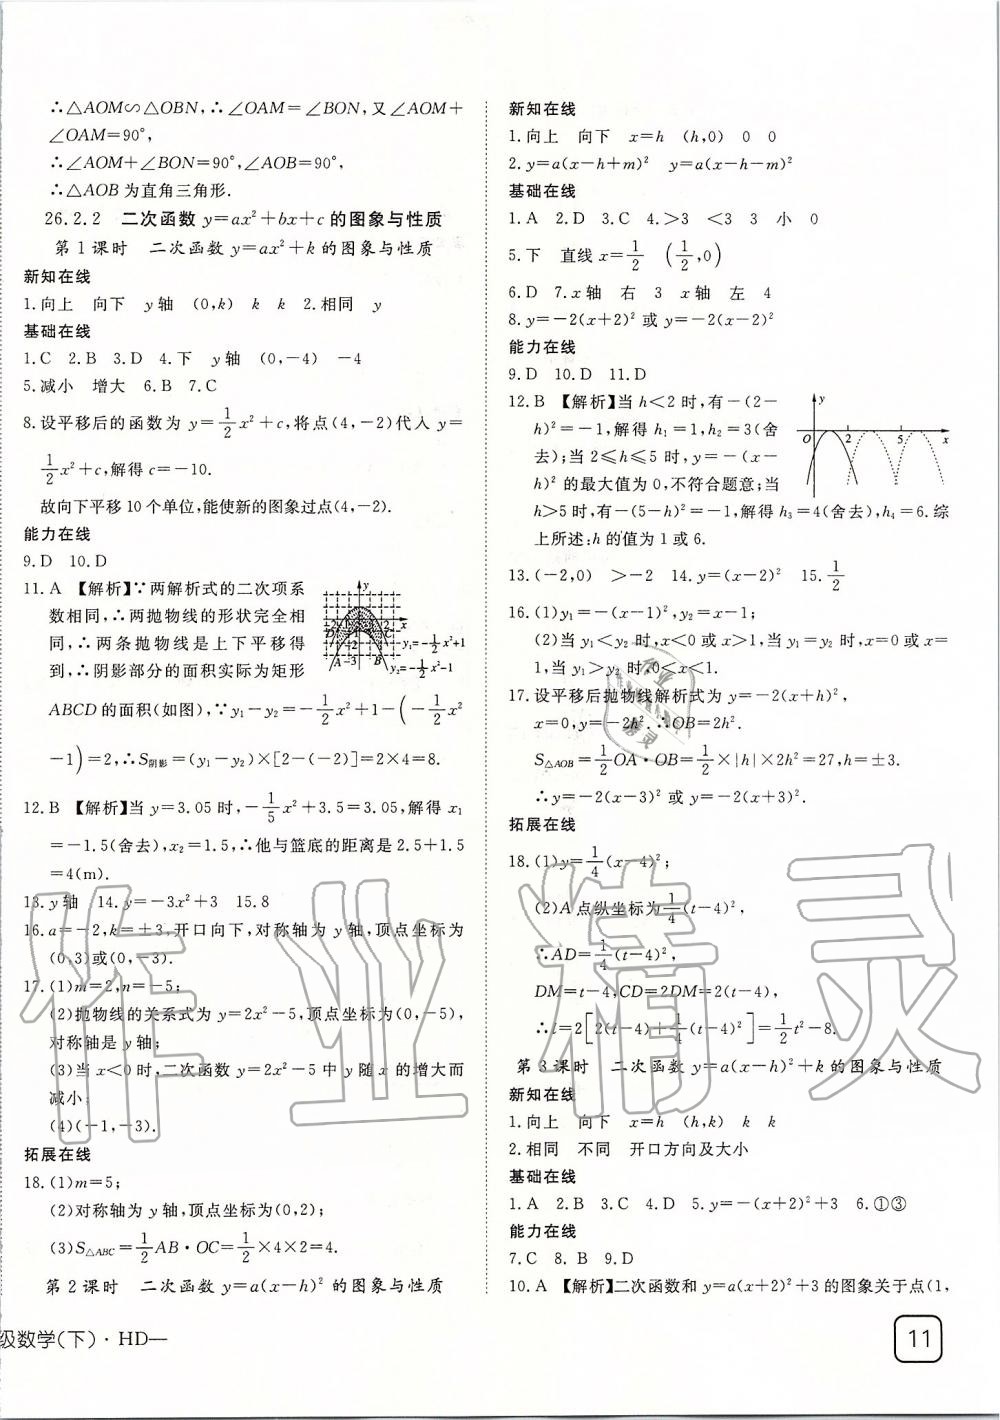 ∴△AOM∽△OBN,∴∠OAM=∠BON,又∠AOM+
∠OAM=90°,
∴∠AOM+∠BON=90°,∠AOB=90°,
∴△AOB为直角三角形.
26.2.2 二次函数y=ax²+bx+c的图象与性质
第1课时 二次函数y=ax²+k的图象与性质
新知在线
1.向上 向下 y轴 (0,k) k k 2.相同 y
基础在线
1.C 2.B 3.D 4.下 y轴 (0,-4) -4
5.减小 增大 6.B 7.C
8.设平移后的函数为y=1/2x²+c,将点(4,-2)代入y=
1/2x²+c,解得c=-10.
故向下平移10个单位,能使新的图象过点(4,-2).
能力在线
9.D 10.D
11.A 【解析】∵两解析式的二次项系
数相同,∴两抛物线的形状完全相
同,∴两条抛物线是上下平移得
到,∴阴影部分的面积实际为矩形
ABCD的面积(如图),∵y₁-y₂=-1/2x²+1-(-1/2x²
-1)=2,∴S阴影=(y₁-y₂)×[2-(-2)]=2×4=8.
12.B 【解析】当y=3.05时,-1/5x²+3.5=3.05,解得x₁
=-1.5(舍去),x₂=1.5,∴他与篮底的距离是2.5+1.5
=4(m).
13.y轴 14.y=-3x²+3 15.8
16.a=-2,k=±3,开口向下,对称轴为y轴,顶点坐标为
(0,3)或(0,-3).
17.(1)m=2,n=-5;
(2)抛物线的关系式为y=2x²-5,顶点坐标为(0,-5),
对称轴是y轴;
(3)当x<0时,二次函数y=2x²-5中y随x的增大而
减小;
(4)(-1,-3).
拓展在线
18.(1)m=5;
(2)对称轴为y轴,顶点坐标为(0,2);
(3)S△ABC=1/2AB·OC=1/2×4×2=4.
第2课时 二次函数y=a(x-h)²的图象与性质
级数学(下)·HD—
新知在线
1.向上 向下 x=h (h,0) 0 0
2.y=a(x-h+m)² y=a(x-h-m)²
基础在线
1.A 2.D 3.C 4.>3 <3 3 小 0
5.下 直线x=1/2 (1/2,0)
6.D 7.x轴 右 3 x轴 左 4
8.y=-2(x+2)²或y=-2(x-2)²
能力在线
9.D 10.D 11.D
12.B 【解析】当h<2时,有-(2-
h)²=-1,解得h₁=1,h₂=3(舍
去);当2≤h≤5时,y=-(x-
h)²的最大值为0,不符合题意;当
h>5时,有-(5-h)²=-1,解得h₃=4(舍去),h₄=6.综
上所述:h的值为1或6.
13.(-2,0) >-2 14.y=(x-2)² 15.1/2
16.(1)y₁=-(x-1)²,y₂=x-1;
(2)当y₁<y₂时,x<0或x>1,当y₁=y₂时,x=0或x=
1,当y₁>y₂时,0<x<1.
17.设平移后抛物线解析式为y=-2(x+h)²,
x=0,y=-2h².∴OB=2h².
S△AOB=1/2OA·OB=1/2×|h|×2h²=27,h=±3.
∴y=-2(x-3)²或y=-2(x+3)².
拓展在线
18.(1)y=1/4(x-4)²;
(2)A点纵坐标为1/4(t-4)²,
∴AD=1/4(t-4)²,
DM=t-4,CD=2DM=2(t-4),
∴l=2[2(t-4)+1/4(t-4)²]=1/2t²-8.
第3课时 二次函数y=a(x-h)²+k的图象与性质
新知在线
1.向上 向下 x=h (h,k) k k
2.相同 不同 开口方向及大小
基础在线
1.A 2.B 3.C 4.D 5.y=-(x+2)²+3 6.①③
能力在线
7.C 8.B 9.D
10.A 【解析】二次函数和y=a(x+2)²+3的图象关于点(1,
11
作业精灵